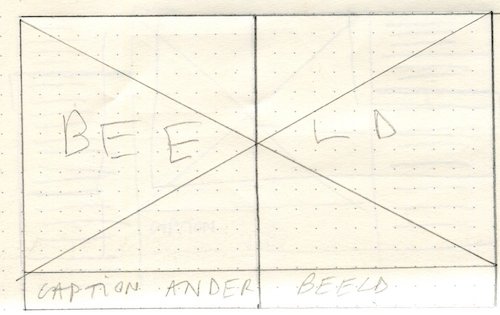 BEELD
CAPTION ANDER BEELD